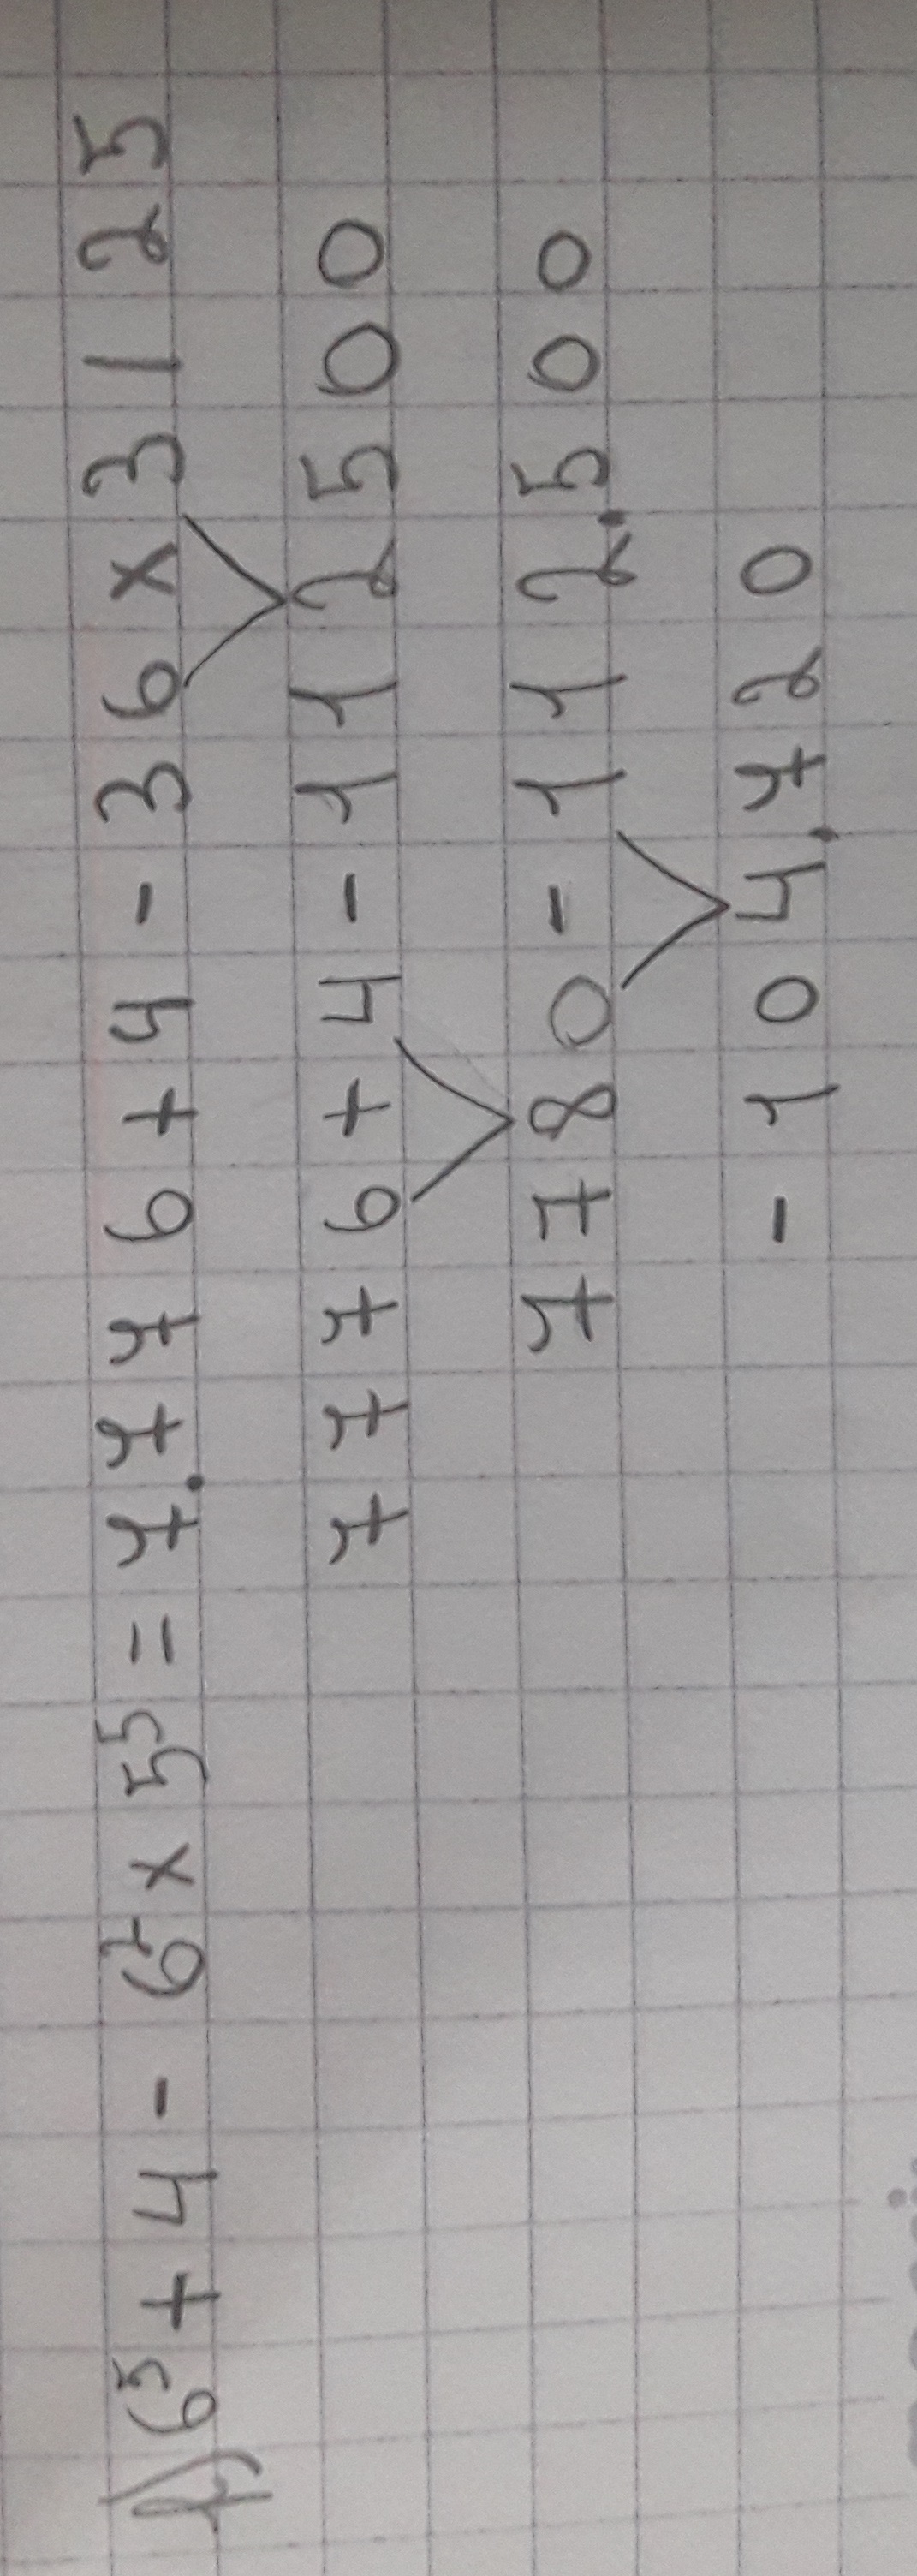 f) 6⁵ + 4 - 6² x 5⁵ = 7.776 + 4 - 36 x 3125
7776 + 4 - 112500
7780 - 112.500
- 104.720